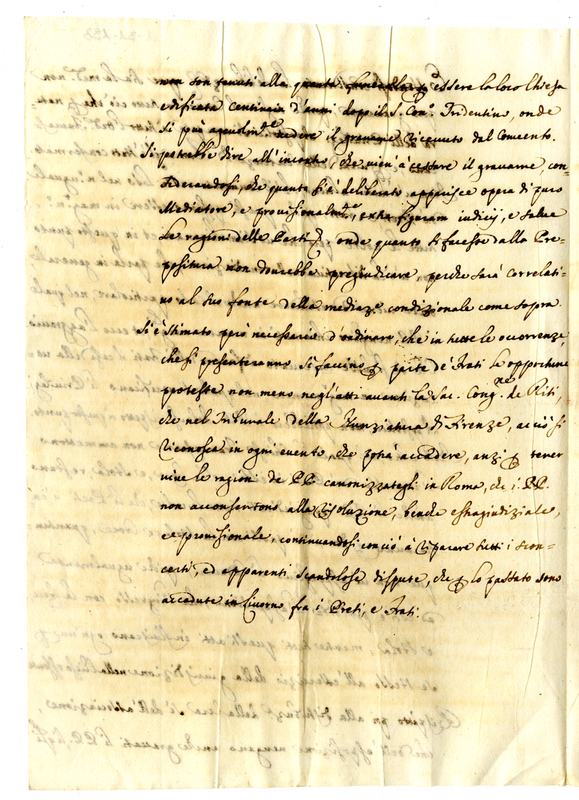 non son tenuti alla quarta essere la loro Chiesa
edificata centinaia d'anni dopo il S. Con.º Tridentino, onde
si può vedere il gravame ricevuto dal Convento.
Si potrebbe dire all'incontro, che vien' à cessare il gravame, con=
siderandosi, che quanto si è deliberato apparisce opera di puro
Mediatore, e provisionalm.te, extra figuram iudicij, e salve
le ragioni delle Parti, onde quanto si facesse dalla Pre=
positura non dovrebbe pregiudicare, perche sarà correlati=
vo al suo fonte della mediaz.e condizionale come sopra.
Si è stimato però necessario d'ordinare, che in tutte le occorrenze,
che si presenteranno si faccino p parte de' Frati le opportune
proteste non meno negl'atti avanti la Sac. Cong.ne de Riti,
che nel Tribunale della Nunziatura di Firenze, acciò si
riconosca in ogni evento, che potrà accadere, anzi p tener
vive le ragioni de PP. canonizzategli in Roma, che i PP.
non acconsentono alla risoluzione, benche estragiudiziale,
e provisionale, continuandosi con ciò à riparare tutti i scon=
certi, ed apparenti scandolose dispute, che p lo passato sono
accadute in Livorno fra i Preti, e Frati.